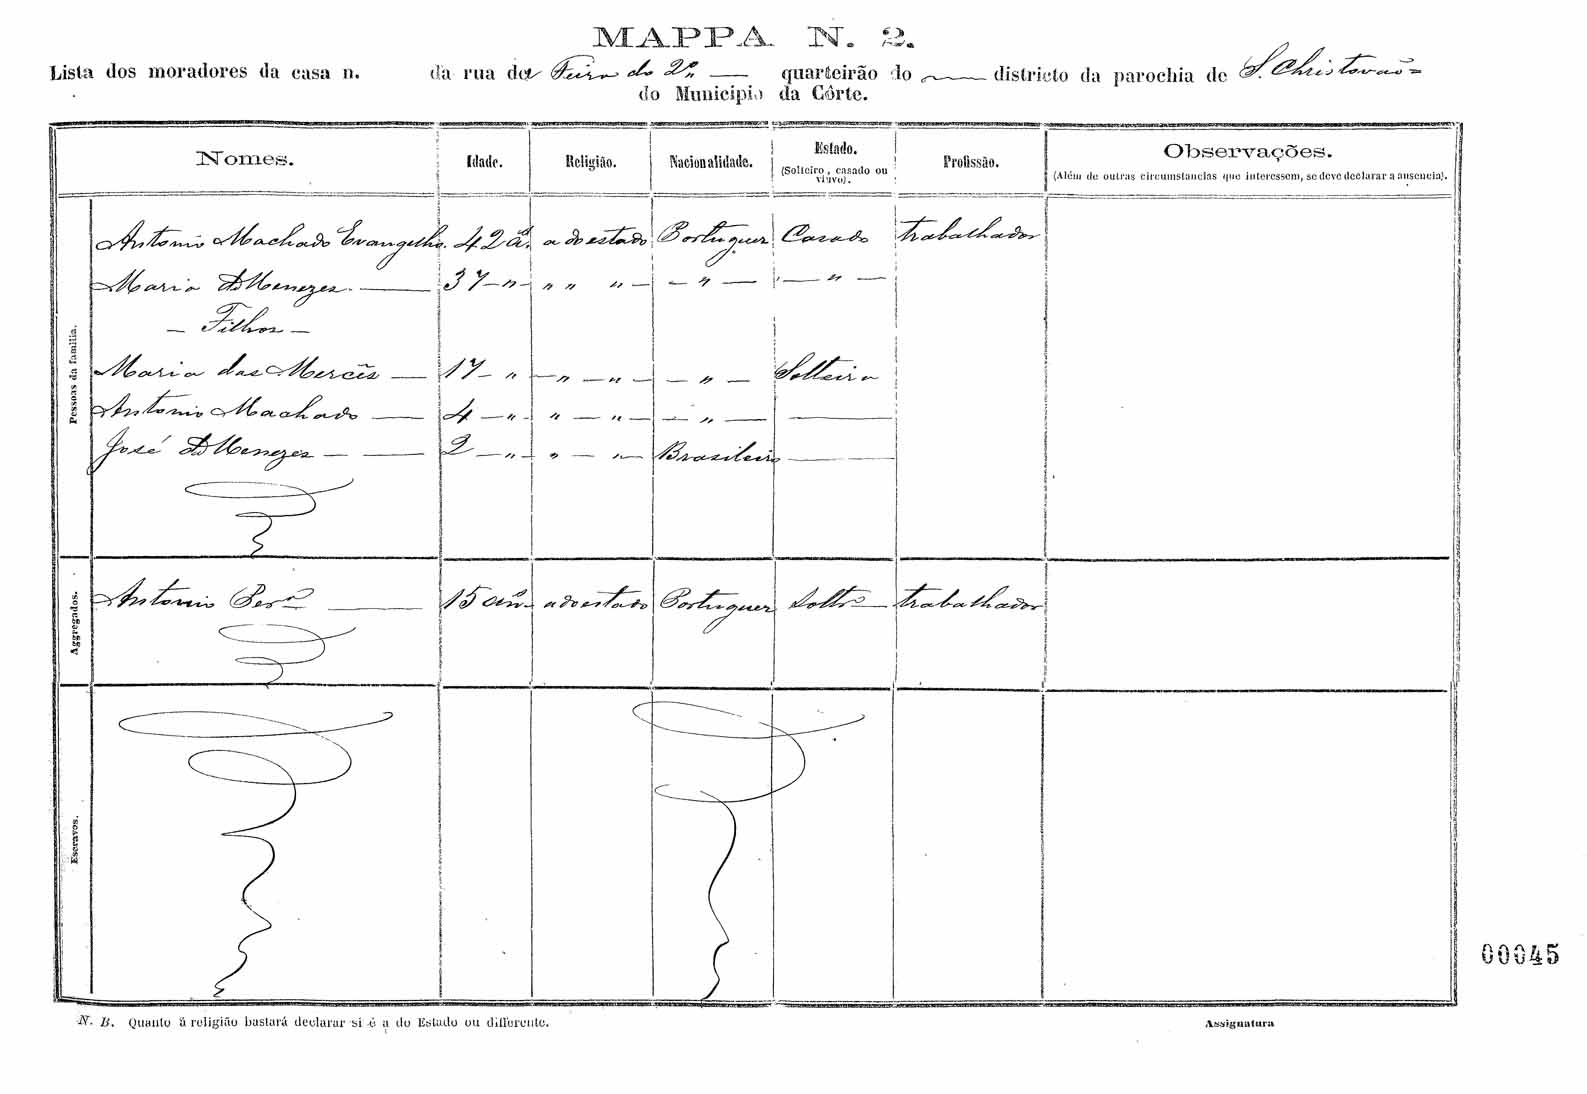 MAPPA N. 2.
Lista dos moradores da casa n. da rua da Feira do 2º quarteirão do districto da parochia de S. Christovaõ
do Municipio da Côrte.
Nomes. Idade. Religião. Nacionalidade. Estado. (Solteiro, casado ou viuvo). Profissão. Observações. (Além de outras circumstancias que interessem, se deve declarar a ausencia).
Pessoas da familia.
Antonio Machado Evangelho. 42 aº. a do estado Portuguez Casado trabalhador
Maria de Menezes — 37 — " — " " " — — " — — " —
— Filhos —
Maria das Mercês — 17 — " — " — " — — " — Solteira
Antonio Machado — 4 — " — " — " — — " — —
José de Menezes — — 2 — " — " — " — Brasileiro —
Aggregados.
Antonio Perª — 15 añ — a do estado Portuguez Soltrº — trabalhador
Escravos.
00045
N. B. Quanto á religião bastará declarar si é a do Estado ou differente.
Assignatura